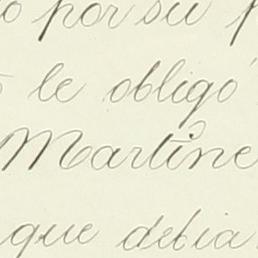 por su
le obligó
Martine
que debia